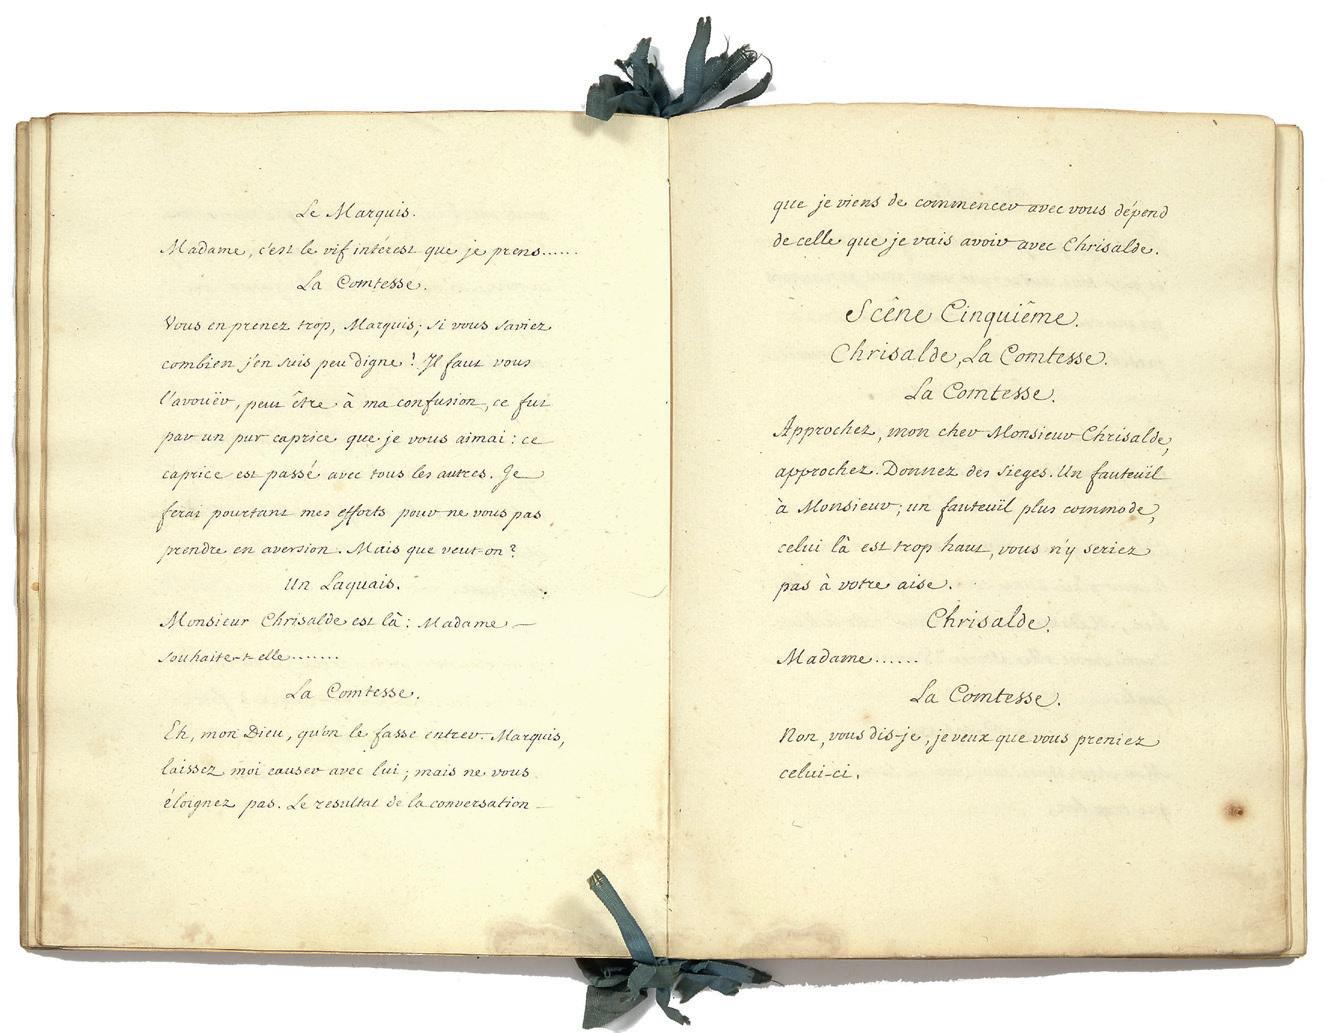 Le Marquis.
Madame, c'est le vif intérest que je prens......
La Comtesse.
Vous en prenez trop, Marquis; si vous saviez
combien j'en suis peu digne! Il faut vous
l'avouër, peut être à ma confusion, ce fut
par un pur caprice que je vous aimai: ce
caprice est passé avec tous les autres. Je
ferai pourtant mes efforts pour ne vous pas
prendre en aversion. Mais que veut-on?
Un Laquais.
Monsieur Chrisalde est là: Madame —
souhaite-t-elle.......
La Comtesse.
Eh, mon Dieu, qu'on le fasse entrer. Marquis,
laissez moi causer avec lui; mais ne vous
éloignez pas. Le resultat de la conversation —
que je viens de commencer avec vous dépend
de celle que je vais avoir avec Chrisalde.
Scêne Cinquiême.
Chrisalde, La Comtesse.
La Comtesse.
Approchez, mon cher Monsieur Chrisalde,
approchez. Donnez des sieges. Un fauteüil
à Monsieur; un fauteüil plus commode,
celui là est trop haut, vous n'y seriez
pas à votre aise.
Chrisalde.
Madame......
La Comtesse.
Non, vous dis-je, je veux que vous preniez
celui-ci.